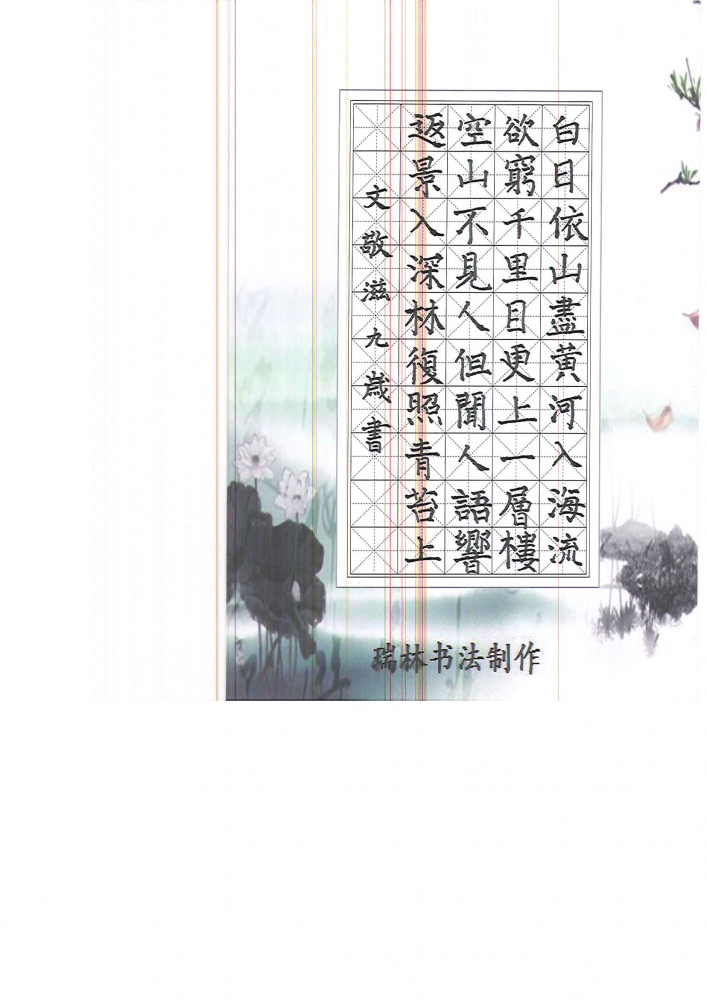 白日依山盡黃河入海流
欲窮千里目更上一層樓
空山不見人但聞人語響
返景入深林復照青苔上
文敬滋九歲書
瑞林书法制作